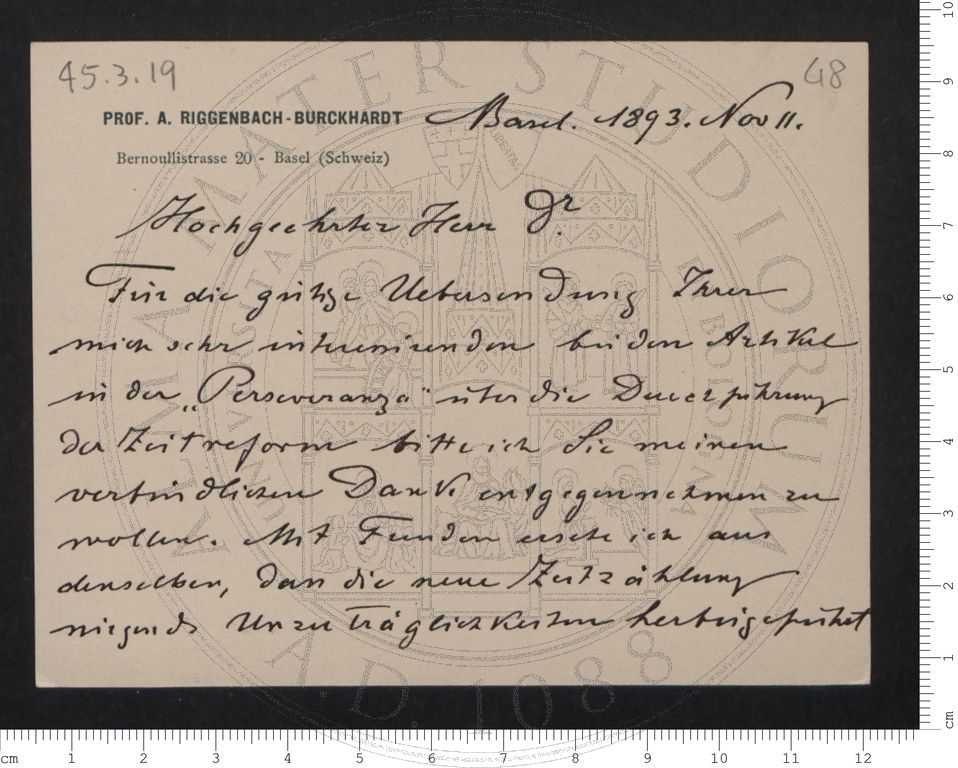 45.3.19
48
PROF. A. RIGGENBACH-BURCKHARDT
Basel. 1893. Nov 11.
Bernoullistrasse 20 - Basel (Schweiz)
Hochgeehrter Herr Dr.
Für die gütige Uebersendung Ihrer
mich sehr interessirenden beiden Artikel
in der „Perseveranza" über die Durchführung
der Zeitreform bitte ich Sie meinen
verbindlichen Dank entgegennehmen zu
wollen. Mit Freuden ersehe ich aus
denselben, dass die neue Zeitzählung
nirgends Unzuträglichkeiten herbeigeführt
ALMA MATER STUDIORUM
A.D. 1088
cm 1 2 3 4 5 6 7 8 9 10 11 12
10
9
8
7
6
5
4
3
2
1
cm